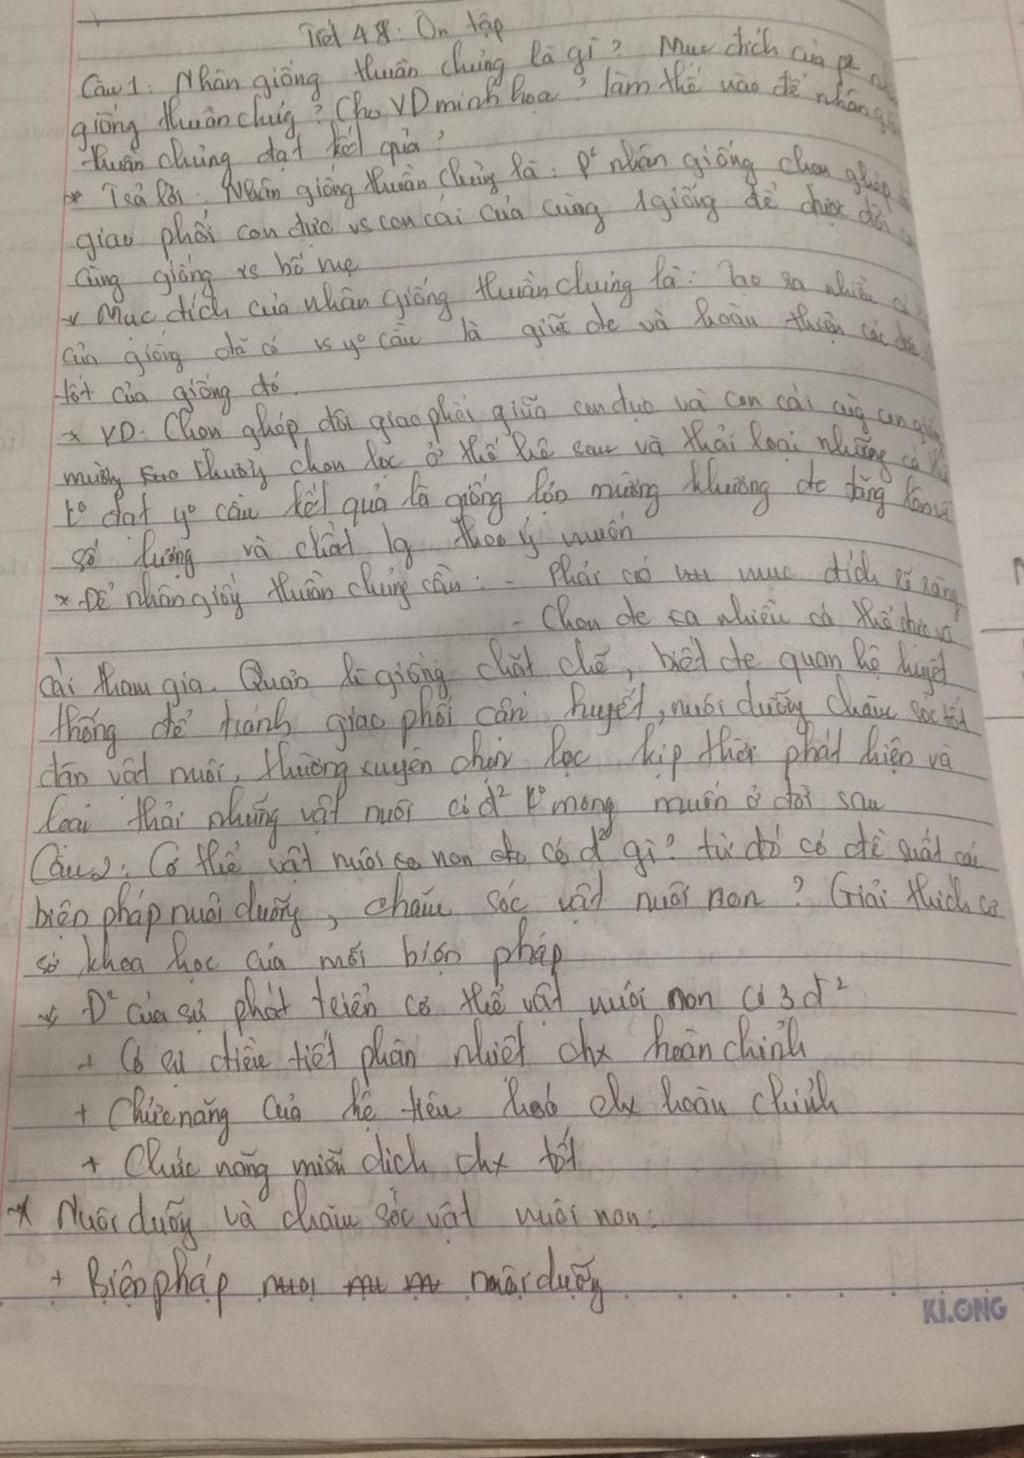 Tiết 48: Ôn tập
Câu 1: Nhân giống thuần chủng là gì? Mục đích của
giống thuần chủg? Cho VD minh hoạ? làm thế nào để nhân
thuần chủng đạt kết quả?
* Trả lời: Nhân giống thuần chủng là: P² nhân giống chọn ghép
giao phối con đực vs con cái của cùng 1 giống để được đời
cùng giống vs bố mẹ
* Mục đích của nhân giống thuần chủng là: Tạo ra nhiều
của giống đã có vs yº cầu là giữ đc và hoàn thiện các
tốt của giống đó.
* VD: Chọn ghép đôi giao phối giữa con đực và con cái
chọn lọc ở thế hệ sau và thải loại những cá
kº đạt yº cầu kết quả là giống lợn đc tăng
số lượng và chất lg theo ý muốn
* Để nhân giống thuần chủng cần: - Phải có mục đích rõ ràng
- Chọn đc ra nhiều cá thể đực và
cái tham gia. Quản lí giống chặt chẽ, biết đc quan hệ huyết
thống để tránh giao phối cận huyết, nuôi dưỡng chăm sóc tốt
đàn vật nuôi, thường xuyên chọn lọc kịp thời phát hiện và
loại thải những vật nuôi có đ² kº mong muốn ở đời sau
Câu 2: Cơ thể vật nuôi non có đ² gì? từ đó có đề suất các
biện pháp nuôi dưỡng, chăm sóc vật nuôi non? Giải thích cơ
sở khoa học của mỗi biện pháp
* Đ² của sự phát triển cơ thể vật nuôi non có 3 đ²
+ điều tiết phân nhiệt chx hoàn chỉnh
+ Chức năng của hệ tiêu hoá chx hoàn chỉnh
+ Chức năng miễn dịch chx tốt
* Nuôi dưỡg và chăm sóc vật nuôi non:
+ Biện pháp nuôi dưỡng
KLONG